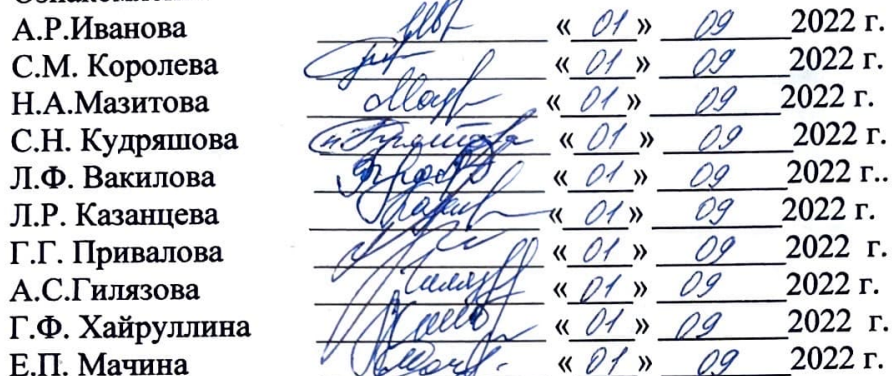 А.Р.Иванова « 01 » 09 2022 г.
С.М. Королева « 01 » 09 2022 г.
Н.А.Мазитова « 01 » 09 2022 г.
С.Н. Кудряшова « 01 » 09 2022 г.
Л.Ф. Вакилова « 01 » 09 2022 г..
Л.Р. Казанцева « 01 » 09 2022 г.
Г.Г. Привалова « 01 » 09 2022 г.
А.С.Гилязова « 01 » 09 2022 г.
Г.Ф. Хайруллина « 01 » 09 2022 г.
Е.П. Мачина « 01 » 09 2022 г.